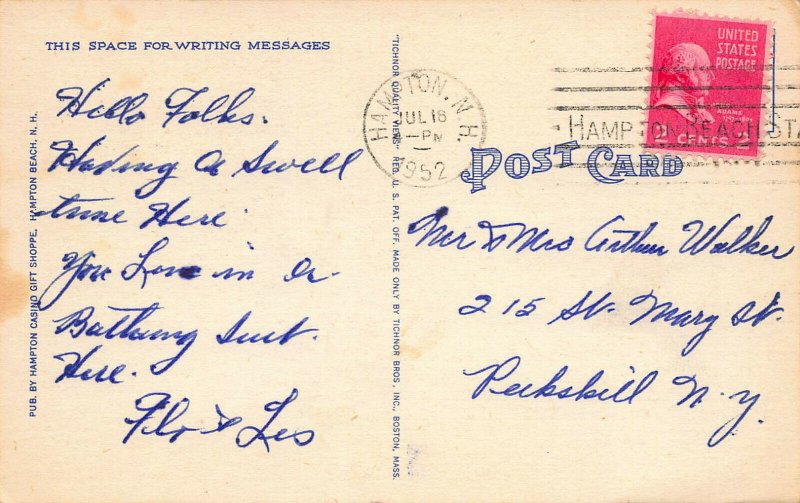 THIS SPACE FOR WRITING MESSAGES
Hello Folks.
Having A Swell
time Here.
You Live in A
Bathing Suit.
Here.
Flo & Les
PUB. BY HAMPTON CASINO GIFT SHOPPE, HAMPTON BEACH, N. H.
"TICHNOR QUALITY VIEWS" REG. U. S. PAT. OFF. MADE ONLY BY TICHNOR BROS. INC., BOSTON, MASS.
HAMPTON, N.H.
JUL 18
PM
1952
HAMPTON BEACH STA
UNITED
STATES
POSTAGE
ADAMS
2 CENTS
POST CARD
Mr & Mrs Arthur Walker
215 St. Mary St.
Peekskill N.Y.